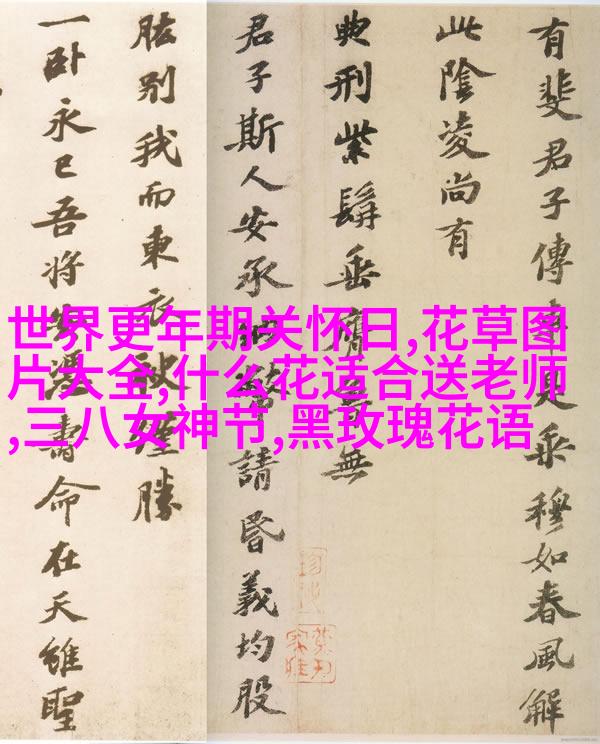 有斐君子傳車是乘穆如春風解
此陰凌尚有
典刑紫髯垂膺魯無
君子斯人安承納幣請昏義均股
肱别我而東衣袂僅勝
一卧永已吾將安憑壽命在天雖聖
世界更年期关怀日,花草图
片大全,什么花适合送老师
,三八女神节,黑玫瑰花语